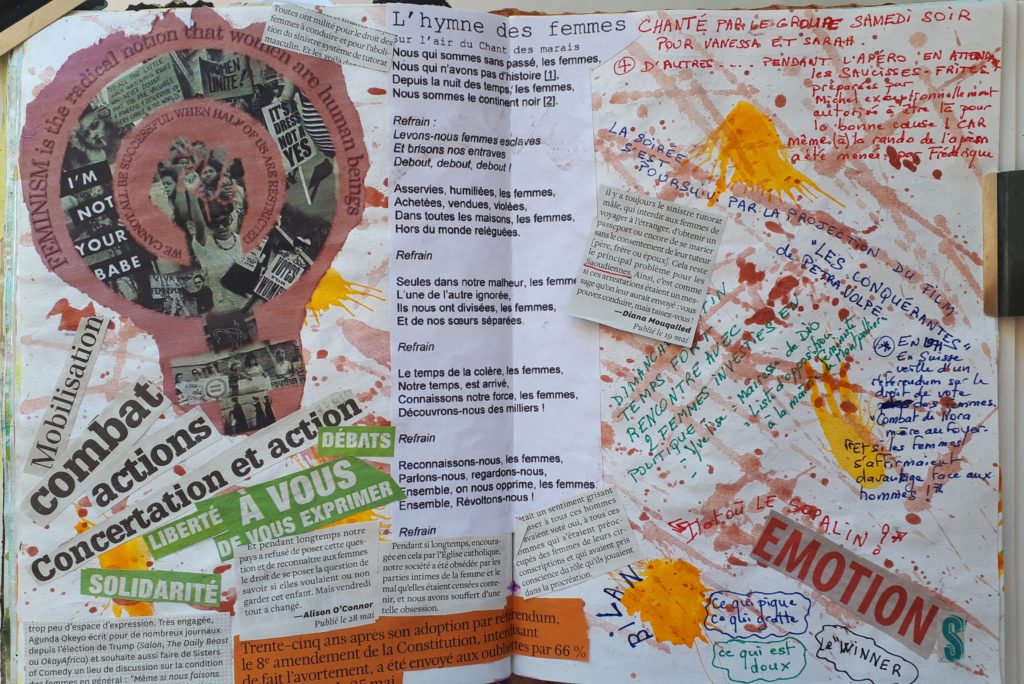 FEMINISM is the radical notion that women are human beings
WE CANNOT ALL BE SUCCESSFUL WHEN HALF OF US ARE RESTRICTED
WOMEN
UNITE!
IT'S A
DRESS
NOT A
YES
I'M
NOT
YOUR
BABE
VIVA
Toutes ont milité pour le droit des
femmes à conduire et pour l'aboli-
tion du sinistre système de tutorat
masculin. Et les voilà
Mobilisation
combat
actions
Concertation et action
DÉBATS
LIBERTÉ
À VOUS
DE VOUS EXPRIMER
SOLIDARITÉ
Et pendant longtemps notre
pays a refusé de poser cette ques-
tion et de reconnaître aux femmes
le droit de se poser la question de
savoir si elles voulaient ou non
garder cet enfant. Mais vendredi
tout a changé.
—Alison O'Connor
Publié le 28 mai
trop peu d'espace d'expression. Très engagée,
Agunda Okeyo écrit pour de nombreux journaux
depuis l'élection de Trump (Salon, The Daily Beast
ou OkayAfrica) et souhaite aussi faire de Sisters
of Comedy un lieu de discussion sur la condition
des femmes en général : "Même si nous faisons
L'hymne des femmes
Sur l'air du Chant des marais
Nous qui sommes sans passé, les femmes,
Nous qui n'avons pas d'histoire [1],
Depuis la nuit des temps, les femmes,
Nous sommes le continent noir [2].
Refrain :
Levons-nous femmes esclaves
Et brisons nos entraves
Debout, debout, debout !
Asservies, humiliées, les femmes,
Achetées, vendues, violées,
Dans toutes les maisons, les femmes,
Hors du monde reléguées.
Refrain
Seules dans notre malheur, les femmes,
L'une de l'autre ignorée,
Ils nous ont divisées, les femmes,
Et de nos sœurs séparées.
Refrain
Le temps de la colère, les femmes,
Notre temps, est arrivé,
Connaissons notre force, les femmes,
Découvrons-nous des milliers !
Refrain
Reconnaissons-nous, les femmes,
Parlons-nous, regardons-nous,
Ensemble, on nous opprime, les femmes,
Ensemble, Révoltons-nous !
Refrain
Pendant si longtemps, encoura-
gée en cela par l'Église catholique,
notre société a été obsédée par les
parties intimes de la femme et le
mal qu'elles étaient censées conte-
nir, et nous avons souffert d'une
telle obsession.
Trente-cinq ans après son adoption par référendum,
le 8e amendement de la Constitution, interdisant
de fait l'avortement, a été envoyé aux oubliettes par 66 %
CHANTÉ PAR LE GROUPE SAMEDI SOIR
POUR VANESSA ET SARAH.
+ D'AUTRES .... PENDANT L'APÉRO EN ATTENDANT
les SAUCISSES-FRITES
préparées par
Michel exceptionnellement
autorisé à être là pour
la bonne cause ! CAR
MÊME (à) la rando de l'aprèm
a été menée par Frédérique
LA SOIRÉE
S'EST
POURSUIVI PAR LA PROJECTION DU
FILM
"LES CONQUÉRANTES"
de PETRA VOLPE
il y a toujours le sinistre tutorat
mâle, qui interdit aux femmes de
voyager à l'étranger, d'obtenir un
passeport ou encore de se marier
sans le consentement de leur tuteur
[père, frère ou époux]. Cela reste
le principal problème pour les
Saoudiennes. Ainsi, c'est comme
si ces arrestations étaient un mes-
sage qu'on leur aurait envoyé : vous
pouvez conduire, mais taisez-vous !
—Diana Mouqalled
Publié le 19 mai
* EN 1971
En Suisse
veille d'un
référendum sur le
droit de vote
des femmes.
Combat de Nora
mère au foyer.
"Et si les femmes
s'affirmaient
davantage face aux
hommes !"
DIMANCHE MATIN
TEMPS FORT
RENCONTRE AVEC
2 FEMMES INVESTIES EN
POLITIQUE
mairesse de
Liste d'opposition
à la mairie de Montpellier
était un sentiment grisant
ser à tous ces hommes
avaient voté oui, à tous ces
ommes qui s'étaient préoc-
cupés des femmes de leurs cir-
conscriptions et qui avaient pris
conscience du rôle qu'ils jouaient
dans la procréation.
OÙ LE SOPALIN ?
EMOTIONS
BILAN
Ce qui pique
Ce qui gratte
ce qui est
doux
le "WINNER"